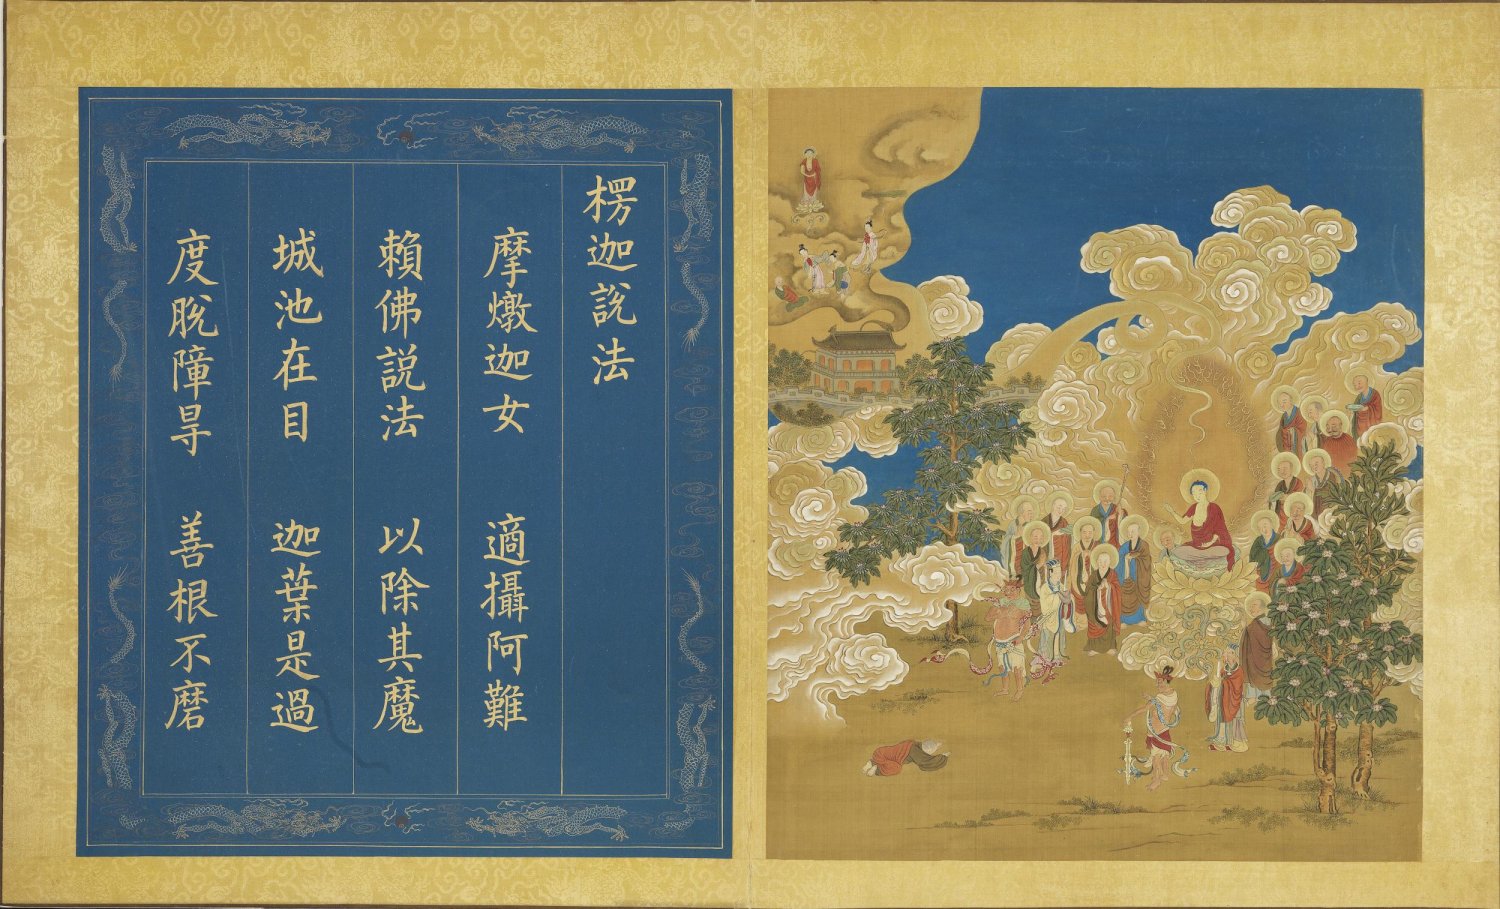 楞迦說法
摩燉迦女 適攝阿難
賴佛説法 以除其魔
城池在目 迦葉是過
度脫障㝵 善根不磨